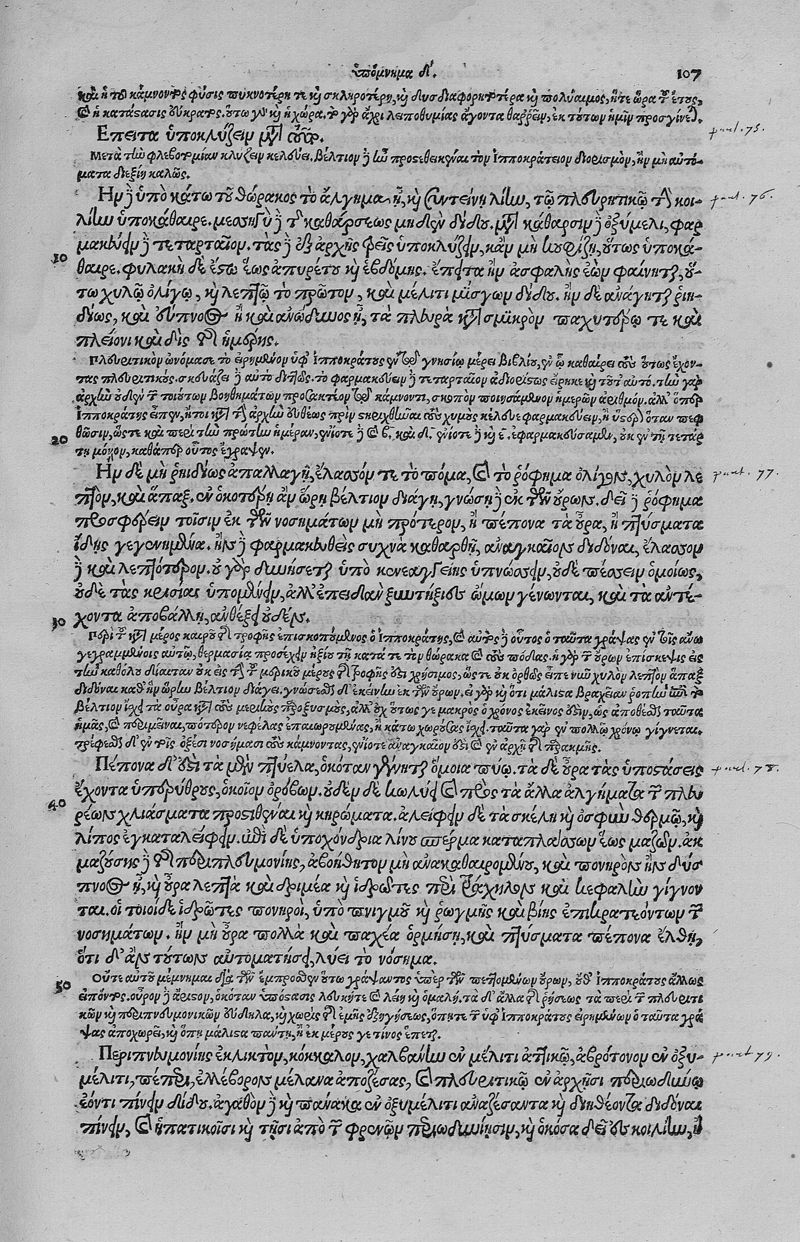 ὑπόμνημα δ´. 107
καὶ ἡ τοῦ κάμνοντος φύσις πυκνοτέρη τε καὶ σκληροτέρη, καὶ δυσδιαφορητοτέρα καὶ πολύαιμος, ἥτε ὥρα τοῦ ἔτους,
καὶ ἡ κατάστασις εὔκρατος. οὕτω γοῦν καὶ ἡ χώρα, τὸ γὰρ ἄχρι λειποθυμίας ἄγοντα θαῤῥεῖν, ἐκ τούτων ἡμῖν προσγίνεται.
Ἔπειτα ὑποκλύζειν μετὰ
Μετὰ τὴν φλεβοτομίαν κλύζειν κελεύει. βέλτιον δὲ ἦν προστεθεικέναι τὸν Ἱπποκράτειον διορισμὸν, ἢν μὴ αὐτό-
ματα διεξίῃ καλῶς.
Ἢν δὲ ὑπὸ κάτω τοῦ θώρακος τὸ ἄλγημα ᾖ, καὶ συντείνῃ λίην, τῷ πλευριτικῷ τὴν κοι-
λίην ὑποκάθαιρε. μεσηγὺ δὲ τῆς καθάρσεως μηδὲν δίδου. μετὰ κάθαρσιν δὲ ὀξύμελι, φαρ
μακεύειν δὲ τεταρταῖον. τὰς δὲ ἐξ ἀρχῆς ὑποκλύζειν, κἂν μὴ κουφίζῃ, οὕτως ὑποκά-
30 θαιρε. φυλακὴ δὲ ἔστω ἕως ἀπυρέτου καὶ ἑβδόμης. ἔπειτα ἢν ἀσφαλὴς ἐὼν φαίνηται, οὕ-
τω χυλῷ ὀλίγῳ, καὶ λεπτῷ τὸ πρῶτον, καὶ μέλιτι μίσγων δίδου. ἢν δὲ ἀνάγηται ῥηι-
δίως, καὶ εὔπνοος ᾖ καὶ ἀνώδυνος ᾖ, τὰ πλευρὰ κατὰ σμικρὸν παχυτέρῳ τε καὶ
πλείονι καὶ δὶς τῆς ἡμέρης.
Πλευριτικὸν ὠνόμασε τὸ εἰρημένον ὑφ' Ἱπποκράτους ἐν τῷ γνησίῳ μέρει βιβλίου, ἐν ᾧ καθαίρει τοὺς οὕτως ἔχον-
τας πλευριτικούς. σκευάζει δὲ αὐτὸ τὸ φαρμακεύειν δὲ τεταρταῖον ἀδιορίστως εἴρηκε καὶ τοῦτ' αὐτό. τὴν γὰρ
ἀρχὴν οὐδὲν τῶν τοιούτων βοηθημάτων προσακτέον τῷ κάμνοντι, σκοπὸν ποιησάμενον ἡμερῶν ἀριθμὸν, ἀλλ' ὅπερ
Ἱπποκράτης εἶπεν, ἤτοι κατὰ τὴν ἀρχὴν εὐθέως πρὶν στηριχθῆναι τοὺς χυμοὺς κελεύει φαρμακεύειν, ἢ ὕστερον ὅταν πεφ
20 θῶσιν, ὥστε καὶ περὶ τὴν πρώτην ἡμέραν, ἐνίοτε καὶ β. καὶ δ. ἐνίοτε δὲ καὶ ε. ἐφαρμακεύσαμεν, οὐκ ἐν τῇ τετάρ
τῃ μόνον, καθάπερ οὗτος ἔγραψεν.
Ἢν δὲ μὴ ῥηιδίως ἀπαλλαγῇ, ἔλασσόν τε τὸ πόμα, καὶ τὸ ῥόφημα ὀλίγον, χυλὸν λε
πτὸν, καὶ ἅπαξ, ἐν ὁκοτέρῃ ἂν ὥρῃ βέλτιον διάγῃ, γνώσῃ δὲ ἐκ τῶν οὔρων. δεῖ δὲ ῥόφημα
προσφέρειν τοῖσιν ἐκ τῶν νοσημάτων μὴ πρότερον, ἢ πέπονα τὰ οὖρα, ἢ πτύσματα
ἴδῃς γεγενημένα. ἢν δὲ φαρμακευθεὶς συχνὰ καθαρθῇ, ἀναγκαῖον διδόναι, ἔλασσον
δὲ καὶ λεπτότερον. οὐ γὰρ δυνήσεται ὑπὸ κενεαγγείης ὑπνώσσειν, οὐδὲ πέσσειν ὁμοίως,
οὐδὲ τὰς κρίσιας ὑπομένειν, ἀλλ' ἐπειδὰν ξυντήξιες ὠμῶν γένωνται, καὶ τὰ αὐτέ-
30 χοντα ἀποβάλῃ, ἀνθέξει οὐδέν.
Περὶ τοῦ κατὰ μέρος καιροῦ τῆς τροφῆς ἐπισκοπούμενος ὁ Ἱπποκράτης, καὶ αὐτὸς δὲ οὗτος ὁ ταῦτα γράψας ἐν τοῖς ἄνω
γεγραμμένοις αὐτῷ, θερμασίᾳ προσέχειν ἠξίου τῇ κατά τε τὸν θώρακα καὶ τοὺς πόδας. ἡ γὰρ τῶν οὔρων ἐπίσκεψις εἰς
τὴν καθόλου δίαιταν οὐκ εἰς τὴν τοῦ μερικοῦ μέρους τροφῆς ἐστὶ χρήσιμος, ὥστε οὐκ ὀρθῶς εἶπεν τὸν χυλὸν λεπτὸν ἅπαξ
διδόναι καθ' ἣν ὥρην βέλτιον διάγει. γνώσεσθαι δ' ἐκείνην ἐκ τῶν οὔρων. εἰ γὰρ καὶ ὅτι μάλιστα βραχεῖαν ῥοπὴν
βέλτιον ἴσχει τὰ οὖρα κατὰ τοὺς μερικοὺς παροξυσμοὺς, ἀλλ' οὐχ οὕτως γε μακρὸς ὁ χρόνος ἐκεῖνός ἐστιν, ὡς ἀποθέσθαι ταῦτα
ἡμᾶς, καὶ περιμεῖναι, πότερον νεφέλας ἐπαιωρουμένας, ἢ κάτω χωρούσας ἴσχει. ταῦτα γὰρ ἐν πολλῷ χρόνῳ γίγνεται.
τρέφεσθαι δ' ἐν τοῖς ὀξέσι νοσήμασι τοὺς κάμνοντας, ἐνίοτε ἀναγκαῖόν ἐστι καὶ ἐν ἀρχῇ τῆς παρακμῆς.
Πέπονα δ' ἐστὶ τὰ μὲν πτύελα, ὁκόταν γένηται ὅμοια πύῳ. τὰ δὲ οὖρα τὰς ὑποστάσεις
40 ἔχοντα ὑπερύθρους, ὁκοῖον ὀρόβων. οὐδὲν δὲ κωλύει καὶ πρὸς τὰ ἄλλα ἀλγήματα τῶν πλευ
ρέων χλιάσματα προστιθέναι καὶ κηρώματα. ἀλείφειν δὲ τὰ σκέλη καὶ ὀσφὺν θερμῷ, καὶ
λίπος ἐγκαταλείφειν. ἐπὶ δὲ ὑποχόνδρια λίνου σπέρμα καταπλάσσων ἕως μαζῶν. ἀκ
μαζούσης δὲ τῆς περιπλευμονίης, ἀβοήθητον μὴ ἀνακαθαιρομένου, καὶ πονηρὸν ἢν δύσ
πνοος ᾖ, καὶ οὖρα λεπτὰ καὶ δριμέα καὶ ἱδρῶτες περὶ τράχηλον καὶ κεφαλὴν γίγνον
ται. οἱ τοιοίδε ἱδρῶτες πονηροὶ, ὑπὸ πνιγμοῦ καὶ ῥωγμῆς καὶ βίης ἐπικρατεόντων τῶν
νοσημάτων. ἢν μὴ οὖρα πολλὰ καὶ παχέα ὁρμήσῃ, καὶ πτύσματα πέπονα ἔλθῃ,
ὅτι δ' ἂν τούτων αὐτοματήσῃ, λύει τὸ νόσημα.
50 Οὔτε αὐτοῦ μέμνημαι διὰ τῶν ἔμπροσθεν οὕτω γράψαντος ὑπὲρ τῶν πεπεμμένων οὔρων, οὔθ' Ἱπποκράτους ἄλλως
εἰπόντος. οὖρον δὲ ἄριστον, ὁκόταν ὑπόστασις λευκή τε καὶ λείη καὶ ὁμαλή. τὰ δ' ἄλλα τῆς ῥήσεως τὰ περὶ τῶν πλευριτι
κῶν καὶ περιπνευμονικῶν εὔδηλα, καὶ χωρὶς τῆς ἐμῆς ἐξηγήσεως, ὁπῃ τε τῶν ὑφ' Ἱπποκράτους εἰρημένων ὁ ταῦτα γρά
ψας ἀποχωρεῖ, καὶ ὅπη μάλιστα πάντη, ἢ ἐκ μέρους γέ τινος ἕπεται.
Περιπνευμονίης ἐκλεικτὸν, κόκκαλον, χαλβάνην ἐν μέλιτι ἀττικῷ, ἀβρότονον ἐν ὀξυ-
μέλιτι, πέπερι, ἐλλέβορον μέλανα ἀποζέσας, καὶ πλευριτικῷ ἐν ἀρχῇσι περιωδυνίῃ
ἐόντι πίνειν δίδου. ἀγαθὸν δὲ καὶ πάνακα ἐν ὀξυμέλιτι ἀναζέσαντα καὶ διηθέοντα διδόναι
πίνειν, καὶ ἡπατικοῖσι καὶ τῇσι ἀπὸ τῶν φρενῶν περιωδυνίῃσιν, καὶ ὁκόσα δεῖ ἐς κοιλίην, ἢ